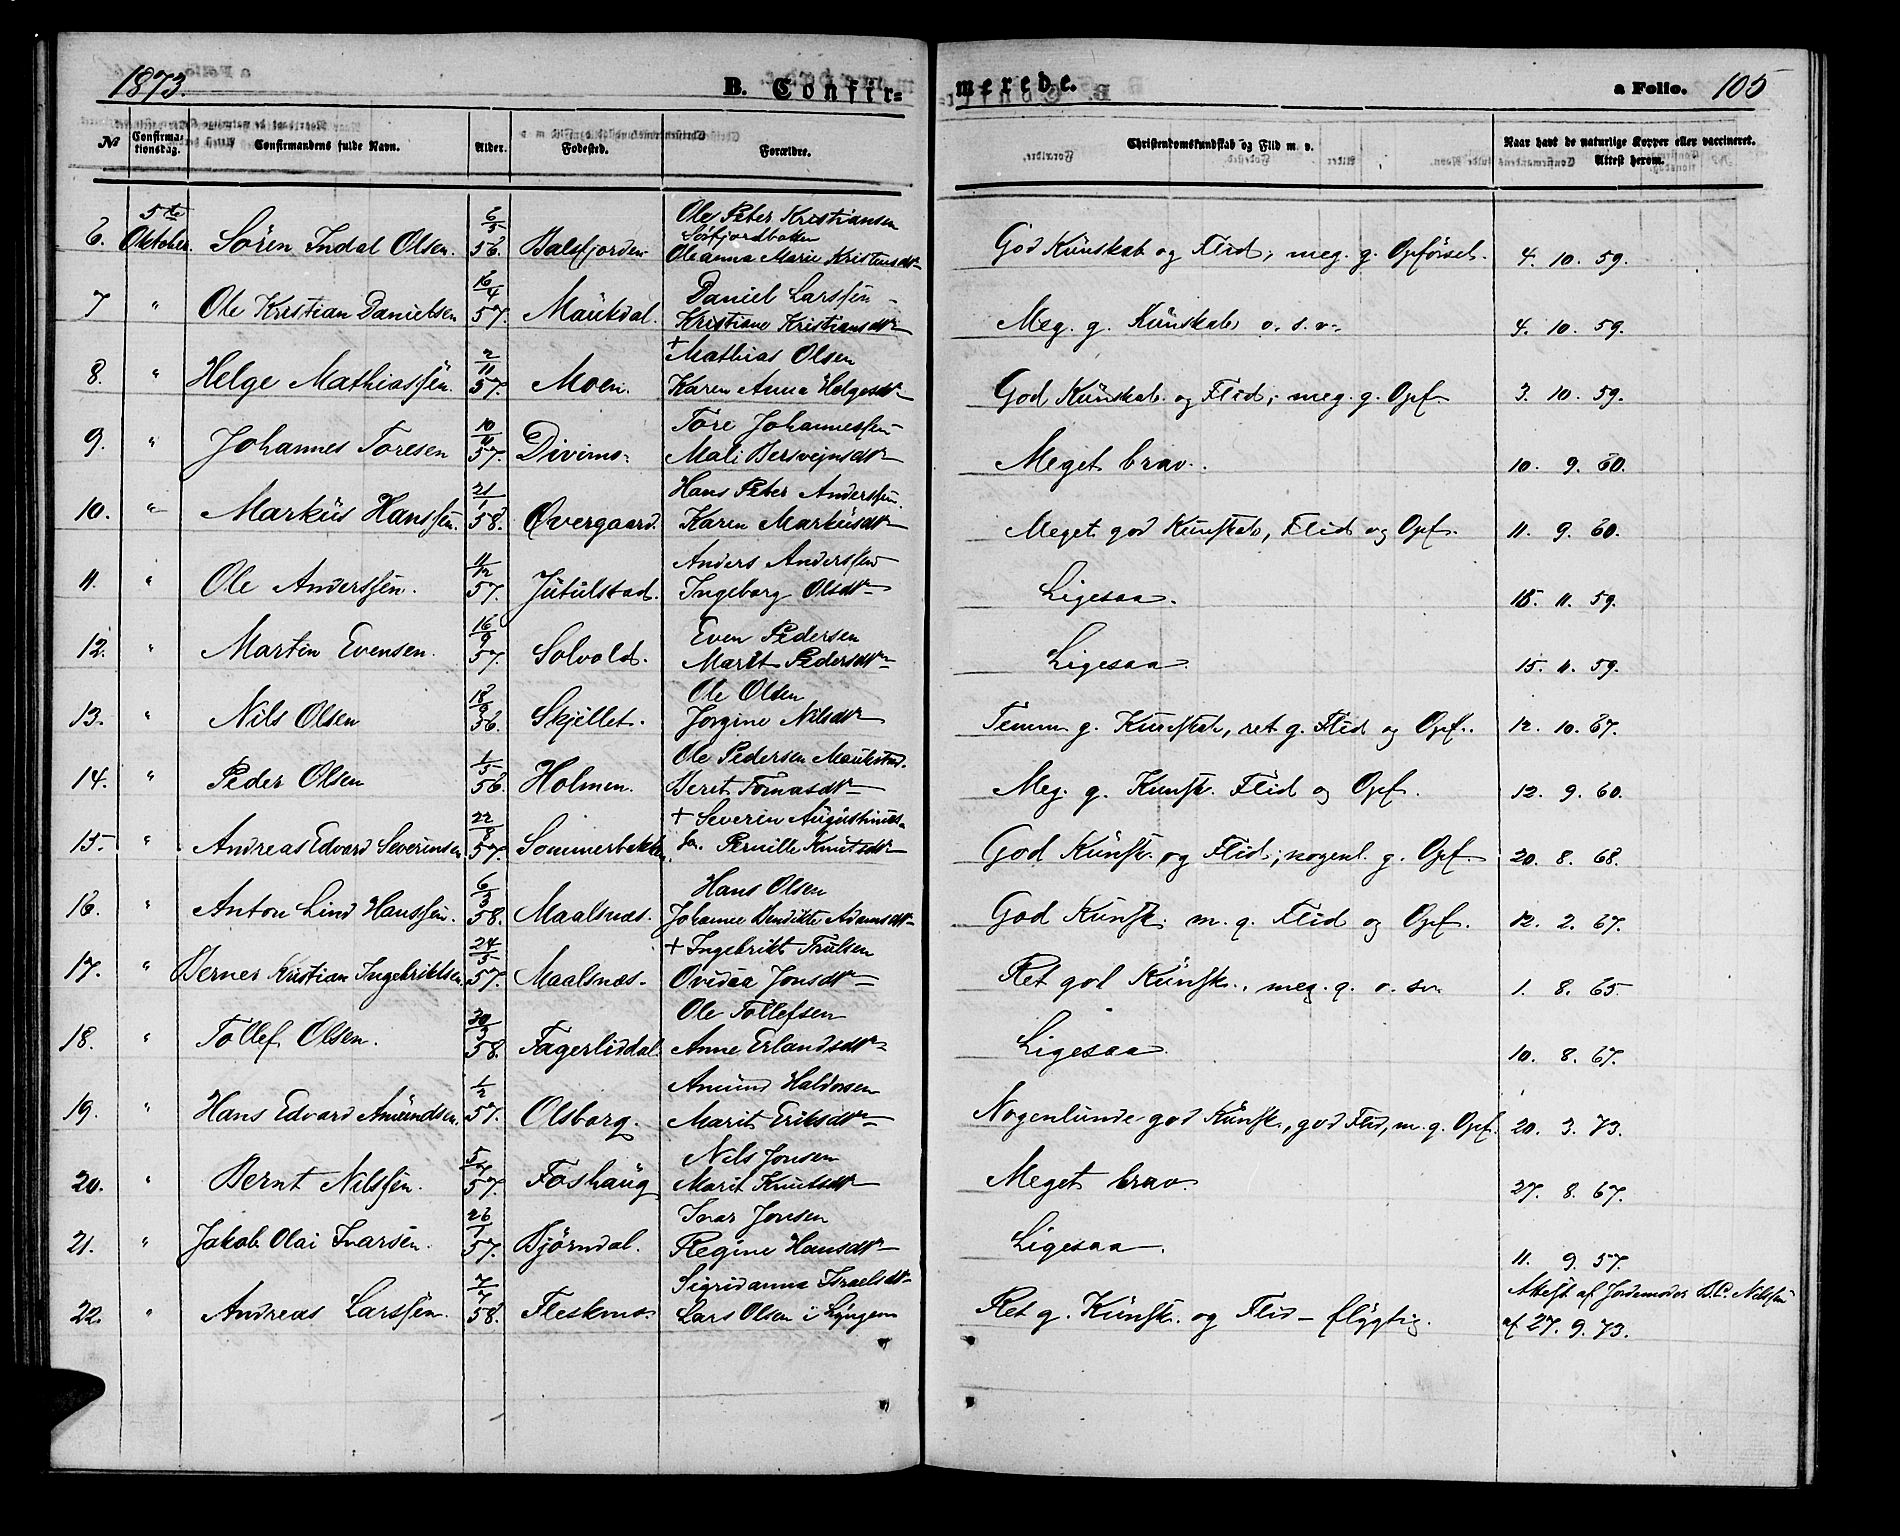 1873. B. Confir= merede. a Folio. 105
№ Confirma- tionsdag. Confirmandens fulde Navn. Alder. Fødested. Forældre. Christendomskundskab og Flid m. v. Naar havt de naturlige Kopper eller vaccineret. Attest herom.
5te Ole Peter Kristiansen
6. Oktober. Sören Indal Olsen. 6/5 56. Balsfjorden Söfjordbotn
Oleanna Marie Kristensdtr God Künskab og Flid; meg. g. Opförsel. 4. 10. 59.
Daniel Larssen
7 " Ole Kristian Danielsen 16/4 57. Maükdal. Kristiane Kristiansdtr Meg. g. Künskab o. s. v. 4. 10. 59.
+ Mathias Olsen
8. " Helge Mathiassen. 2/11 57. Moen. Karen Anna Helgesdtr God Künskab og Flid; meg. g. Opf. 3. 10. 59.
Tore Johannessen
9. " Johannes Toresen 10/11 57. Divimo Mali Bersvejnsdtr Meget brav. 10. 9. 60.
Hans Peter Anderssen.
10. " Marküs Hanssen. 21/1 58. Øvergaard. Karen Marküsdtr Meget god Kunskab, Flid og Opf. 11. 9. 60.
Anders Anderssen
11. " Ole Anderssen. 11/12 57. Jütülstad. Ingeborg Olsdtr Ligesaa. 15. 11. 59.
Even Pedersen
12. " Martin Evensen. 16/9 57. Solvold. Marit Pedersdtr Ligesaa. 15. 11. 59.
Ole Olsen
13. " Nils Olsen 56. Skjellet. Jorgine Nilsdtr Temm. g. Kunskab, ret g. Flid og Opf. 12. 10. 67.
Ole Pedersen Maukstad.
14. " Peder Olsen 1/5 56. Holmen. Beret Tomasdtr Meg. g. Kunsk. Flid og Opf. 12. 9. 60.
+ Severin Augüstinüs-
15. " Andreas Edvard Severinsen 22/8 57. Sommerbakken. sen. Pernille Knutsdtr God Künsk. og Flid; nogenl. g. Opf. 20. 8. 68.
Hans Olsen
16. " Anton Lind Hanssen. 6/3 58. Maalsnæs. Johanne Bendikte Adamsdtr God Künsk. m. g. Flid og Opf. 12. 2. 67.
+ Ingebrikt Trulsen
17. " Berner Kristian Ingebriktsen 24/5 57. Maalsnæs. Ovidia Jonsdtr Ret god Künsk., meg. g. o. sv. 1. 8. 65.
Ole Tollefsen
18. " Tollef Olsen. 30/3 58. Fagerliddal Anne Erlandsdtr Ligesaa. 10. 8. 67.
Amund Haldorsen
19. " Hans Edvard Amündsen. 1/2 57. Olsborg. Marit Eriksdtr Nogenlunde god Künsk., god Flid, m. g. Opf. 20. 3. 73.
Nils Jonsen
20. " Bernt Nilssen. 5/7 57. Foshaüg Marit Knutsdtr Meget brav. 27. 8. 67.
Ivar Jonsen
21. " Jakob Olai Ivarsen. 26/1 57. Björndal. Regine Hansdtr Ligesaa. 11. 9. 57.
Sigridanna Israelsdtr Attest af Jordemoder Nilssen
22. " Andreas Larssen. 7/7 58. Fleskmo Lars Olsen i Lyngen Ret g. Künsk. og Flid - flygtig. af 27. 9. 73.